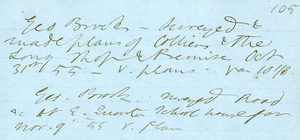 105
Geo Brooks - Surveyed &
made plans of Colliers & the
Long Shop & Premises Oct
31st 55 - v. plans
Geo. Brooks. surveyed Road
at E. Quarter School house for
Nov. 9 - 55 v. Plan